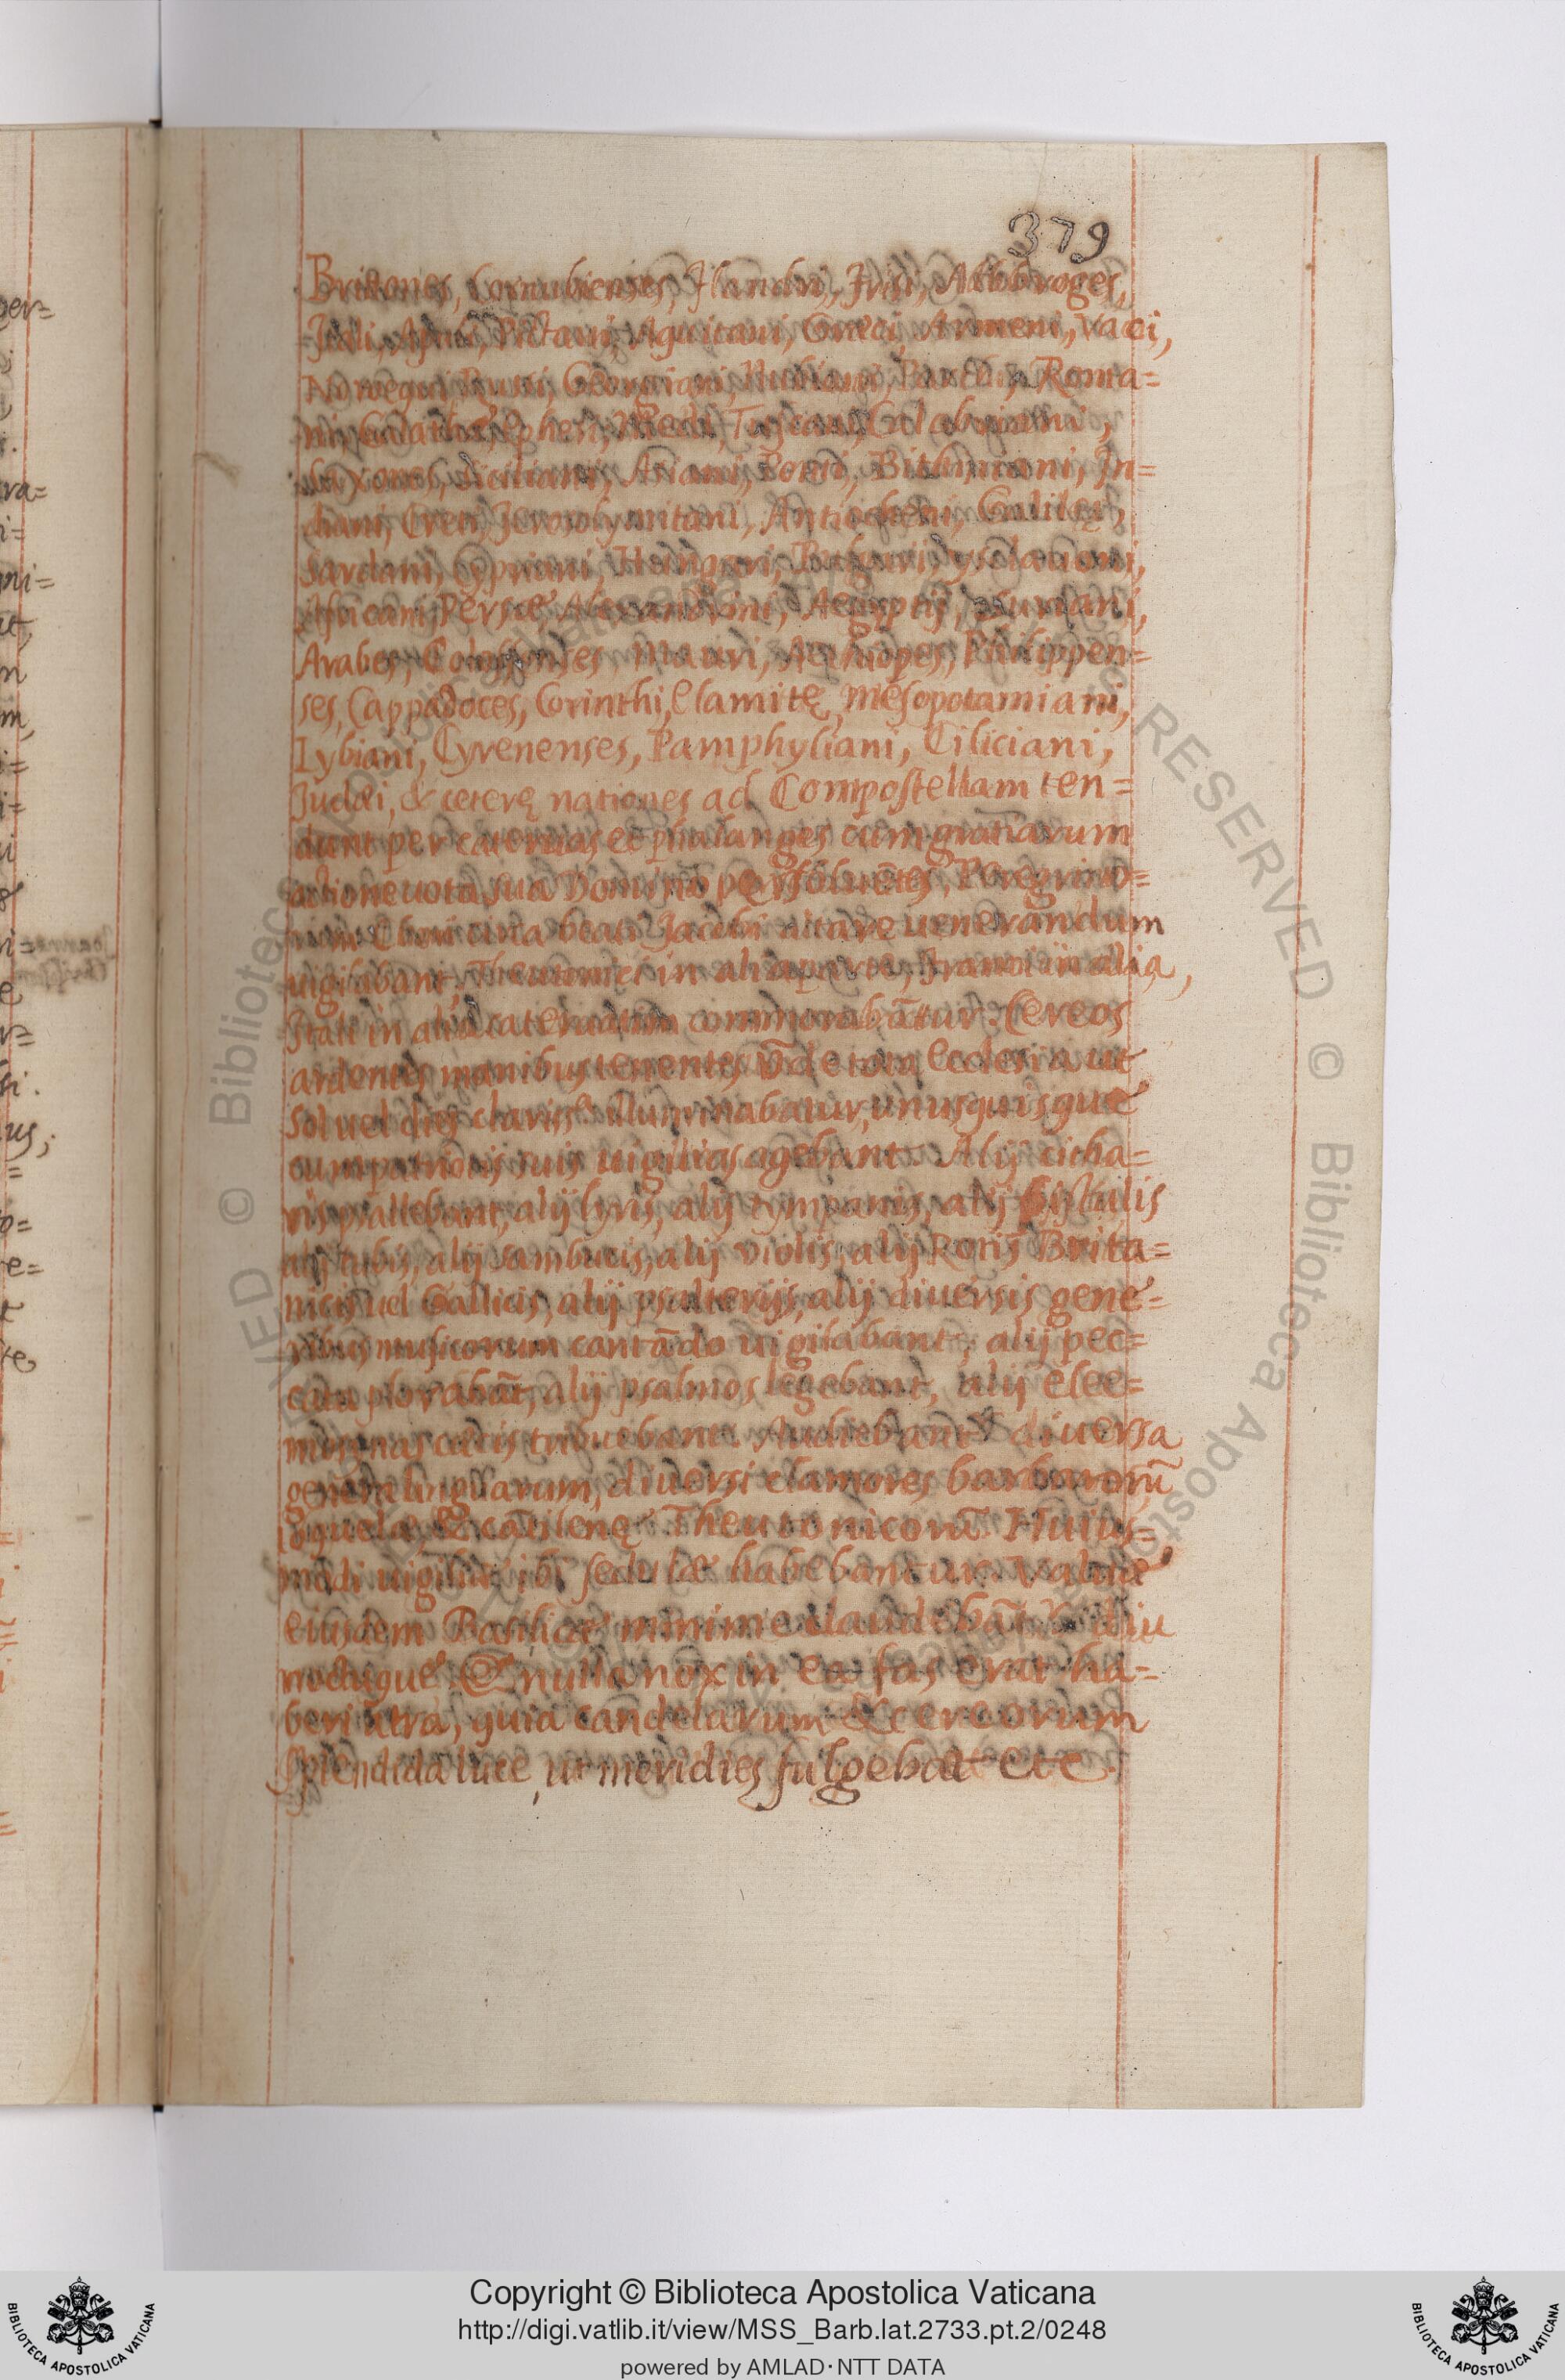 379
Britones, Cornubienses, Flandri, Frisi, Allobroges,
Itali, Apuli, Pictavi, Aquitani, Græci, Armeni, Daci,
Noroegui, Russi, Georgiani, Nubiani, Parthi, Roma=
ni, Galathæ, Ephesi, Medi, Tusciani, Calabriani,
Saxones, Siciliani, Asiani, Ponti, Bithiniani, In=
diani, Creti, Jerosolymitani, Antiocheni, Galilei,
Sardani, Cypriani, Hungari, Bulgari, Ysclavoni,
Africani, Persæ, Alexandrini, Aegyptij, Suriani,
Arabes, Colossenses, Mauri, Aethiopes, Philippen=
ses, Cappadoces, Corinthi, Elamitę, Mesopotamiani,
Lybiani, Cyrenenses, Pamphyliani, Ciliciani,
Judæi, & ceterę nationes ad Compostellam ten=
dunt per cateruas et phalanges cum gratiarum
actione uota sua Domino persoluētes, Peregrino=
rum Chori circa beati Jacobi altare uenerandum
uigilabant, Theutonici in alia parte, Franci in alia,
Itali in alia cateruatim commorabātur. Cereos
ardentes manibus tenentes, vn̄de tota Ecclesia ut
Sol uel dies clariss.ª illuminabatur, unusquisque
cum patriotis suis uigilias agebant. Alij citha=
ris psallebant, alij lyris, alij tympanis, alij fistulis
alij tubis, alij sambucis, alij violis, alij Rotis Brita=
nicis uel Gallicis, alij psalterijs, alij diuersis gene=
ribus musicorum cantādo uigilabant, alij pec=
cata plorabāt, alij psalmos legebant, alij elee=
mosynas cæcis tribuebant. Audiebant diuersa
genera linguarum, diuersi clamores barbarorū
loquelæ, & cātilenę Theutonicorū. Huius=
modi uigiliæ ibi sedulæ habebantur. Valuæ
eiusdem Basilicæ minime claudebāt die
noctuque & nulla nox in ea fas erat ha=
beri atra, quia candelarum & cereorum
splendida luce ut meridies fulgebat etc.
Copyright © Biblioteca Apostolica Vaticana
http://digi.vatlib.it/view/MSS_Barb.lat.2733.pt.2/0248
powered by AMLAD·NTT DATA
BIBLIOTECA APOSTOLICA VATICANA
BIBLIOTECA APOSTOLICA VATICANA